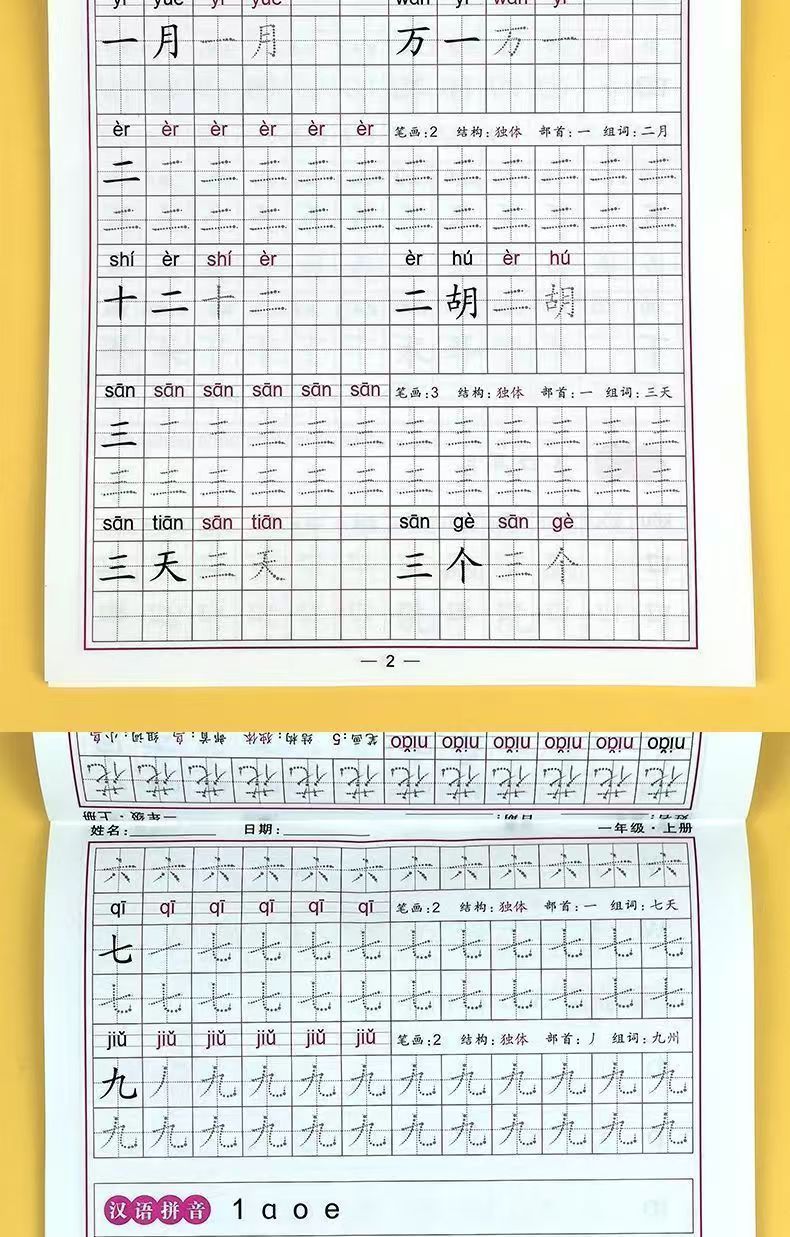 yī yuè yī yuè wàn yī wàn yī
一月一月 万一万一
èr èr èr èr èr èr 笔画:2 结构:独体 部首:一 组词:二月
二二二二二二二二二二二二
二二二二二二二二二二二二
shí èr shí èr èr hú èr hú
十二十二 二胡二胡
sān sān sān sān sān sān 笔画:3 结构:独体 部首:一 组词:三天
三一二三三三三三三三三三
三三三三三三三三三三三三
sān tiān sān tiān sān gè sān gè
三天三天 三个三个
— 2 —
niǎo niǎo niǎo niǎo niǎo niǎo 笔画:5 结构:独体 部首:鸟 组词:小鸟
花花花花花花花花花花花花
姓名: 日期: 一年级·上册
姓名: 日期: 一年级·上册
六六六六六六六六六六六六
qī qī qī qī qī qī 笔画:2 结构:独体 部首:一 组词:七天
七一七七七七七七七七七七
七七七七七七七七七七七七
jiǔ jiǔ jiǔ jiǔ jiǔ jiǔ 笔画:2 结构:独体 部首:丿 组词:九州
九丿九九九九九九九九九九
九九九九九九九九九九九九
汉语拼音 1 ɑ o e